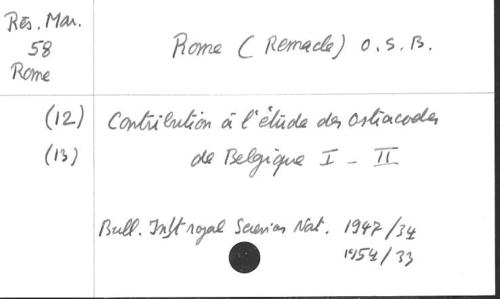 Rés. Mar.
58
Rome
Rome (Remacle) O.S.B.
(12) Contribution à l'étude des ostracodes
(13) de Belgique I - II
Bull. Inst royal Scienc Nat. 1947/34
1954/33